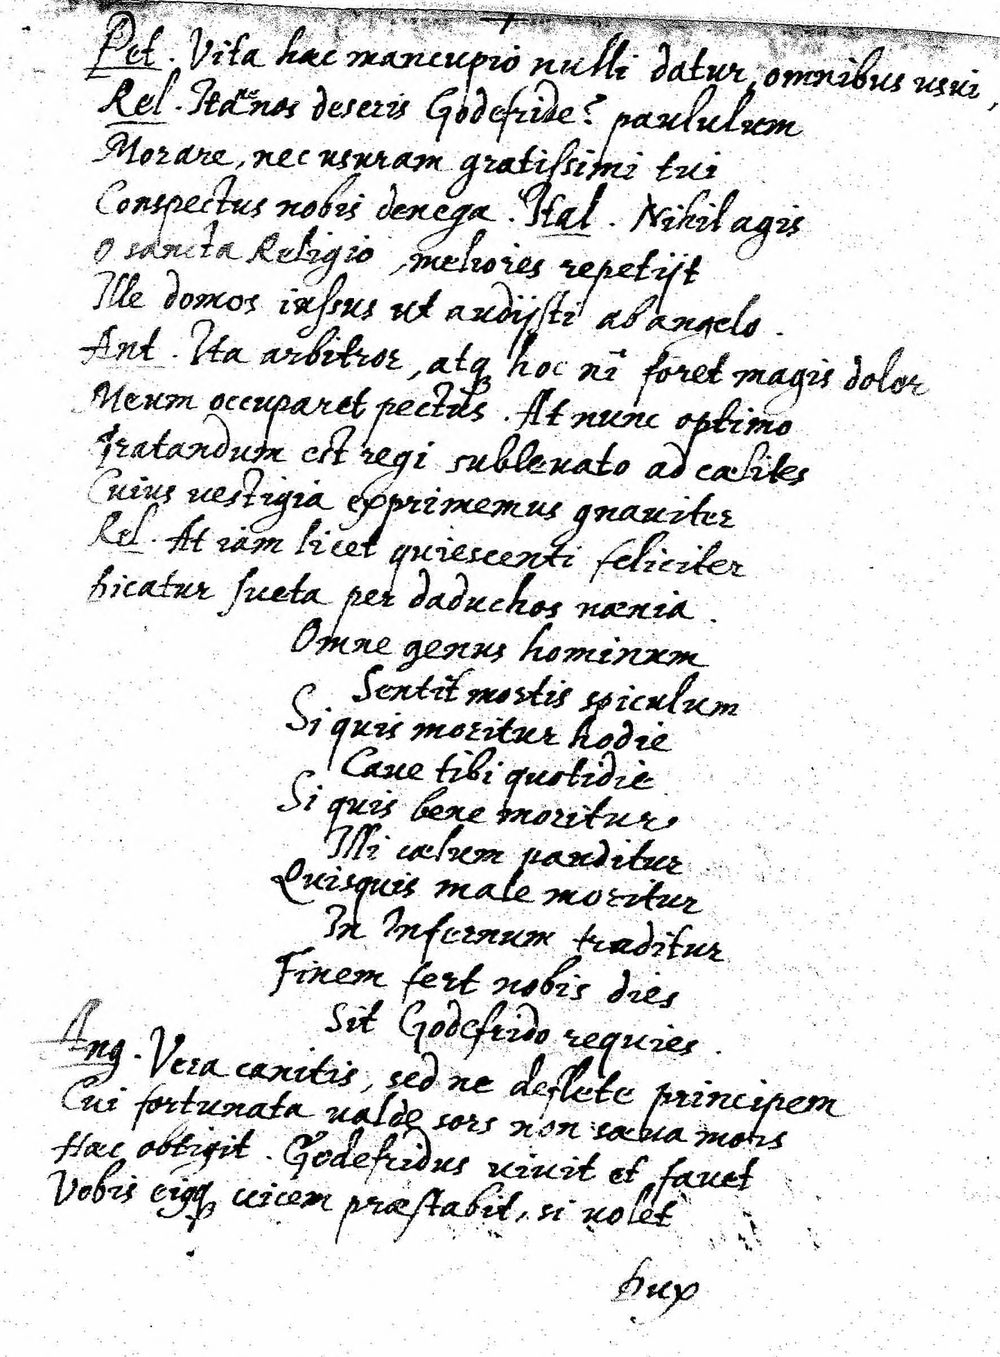 Pet. Vita hac mancupio nulli datur, omnibus usui,
Rel. Itane nos deseris Godefride? paululum
Morare, nec usuram gratissimi tui
Conspectus nobis denega. Ital. Nihil agis
o sancta Religio, meliores repetijt
Ille domos iussus ut audijsti ab angelo.
Ant. Ita arbitror, atq hoc ni foret magis dolor
Meum occuparet pectus. At nunc optimo
Gratandum est regi subleuato ad cælites
Cuius uestigia exprimemus gnauiter
Rel. At iam licet quiescenti feliciter
Dicatur sueta per daduchos nænia.
Omne genus hominum
Sentit mortis spiculum
Si quis moritur hodie
Caue tibi quotidie
Si quis bene moritur
Illi cælum panditur
Quisquis male moritur
In Infernum traditur
Finem fert nobis dies
Sit Godefrido requies.
Ang. Vera canitis, sed ne deflete principem
Cui fortunata ualde sors non sæua mors
Hac obtigit. Godefridus uiuit et fauet
Vobis eiq uicem præstabit, si uolet
Dux